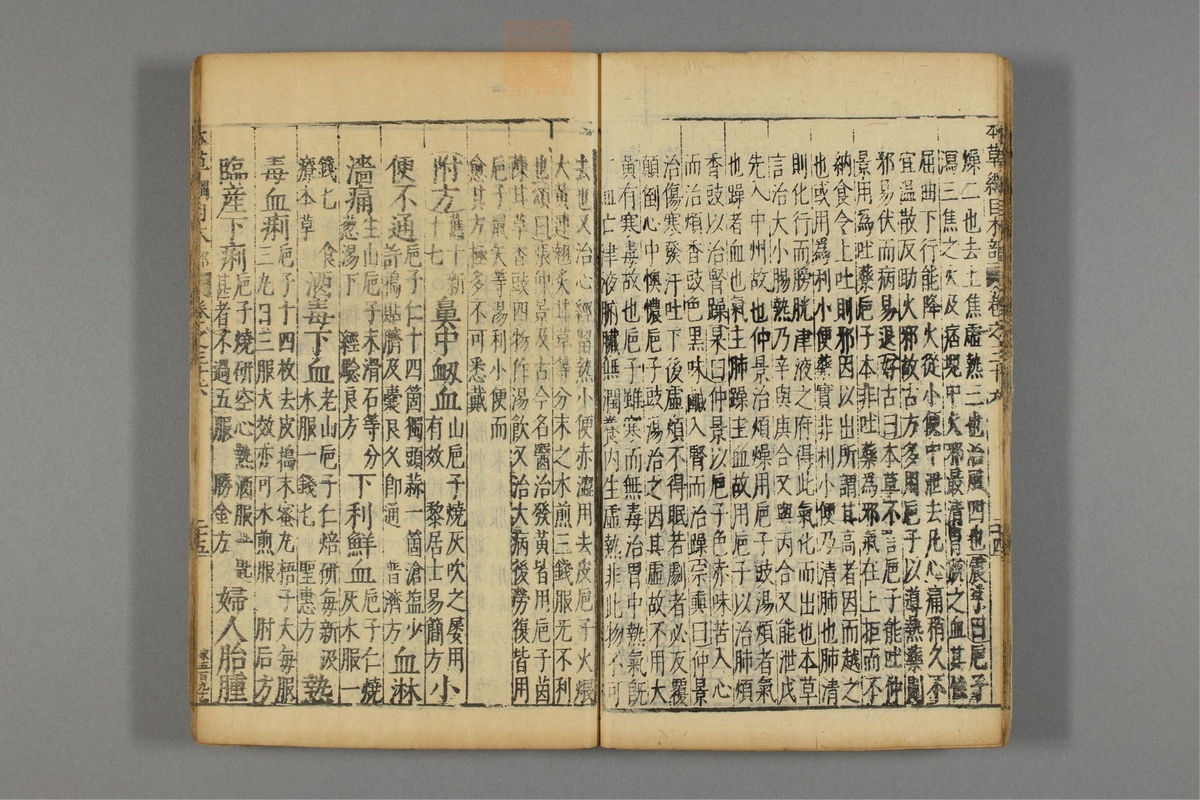 本草綱目木部 卷之三十六 二十四
燥二也去上焦虛熱三也治風四也震亨曰巵子
瀉三焦之火及痞塊中火邪最清胃脘之血其性
屈曲下行能降火從小便中泄去凡心痛稍久不
宜溫散反助火邪故古方多用巵子以導熱藥則
邪易伏而病易退好古曰本草不言巵子能吐仲
景用爲吐藥巵子本非吐藥爲邪氣在上拒而不
納食令上吐則邪因以出所謂其高者因而越之
也或用爲利小便藥實非利小便乃清肺也肺清
則化行而膀胱津液之府得此氣化而出也本草
言治大小腸熱乃辛與庚合又與丙合又能泄戊
先入中州故也仲景治煩燥用巵子豉湯煩者氣
也躁者血也氣主肺躁主血故用巵子以治肺煩
香豉以治腎躁杲曰仲景以巵子色赤味苦入心
而治煩香豉色黑味鹹入腎而治躁宗奭曰仲景
治傷寒發汗吐下後虛煩不得眠若劇者必反覆
顛倒心中懊憹巵子豉湯治之因其虛故不用大
黃有寒毒故也巵子雖寒而無毒治胃中熱氣旣
亡血亡津液腑臟無潤養内生虛熱非此物不可
去也又治心經留熱小便赤澀用去皮巵子火煨
大黃連翹炙甘草等分末之水煎三錢服无不利
也頌曰張仲景及古今名醫治發黃皆用巵子茵
蔯甘草香豉四物作湯飲又治大病後勞復皆用
巵子鼠矢等湯利小便而
愈其方極多不可悉載
附方 舊十新十七 鼻中衄血 山巵子燒灰吹之屢用有效 黎居士易簡方 小
便不通 巵子仁十四箇獨頭蒜一箇滄鹽少許搗貼臍及囊良久卽通 普濟方 血淋
濇痛 生山巵子末滑石等分葱湯下 經驗良方 下利鮮血 巵子仁燒灰水服一
錢匕 食療本草 酒毒下血 老山巵子仁焙研每新汲水服一錢匕 聖惠方 熱
毒血痢 巵子十四枚去皮搗末蜜丸梧子大每服三丸日三服大效亦可水煎服 肘后方
臨産下痢 巵子燒研空心熱酒服一匙甚者不過五服 勝金方 婦人胎腫
本草綱目木部 卷之三十六 二十五